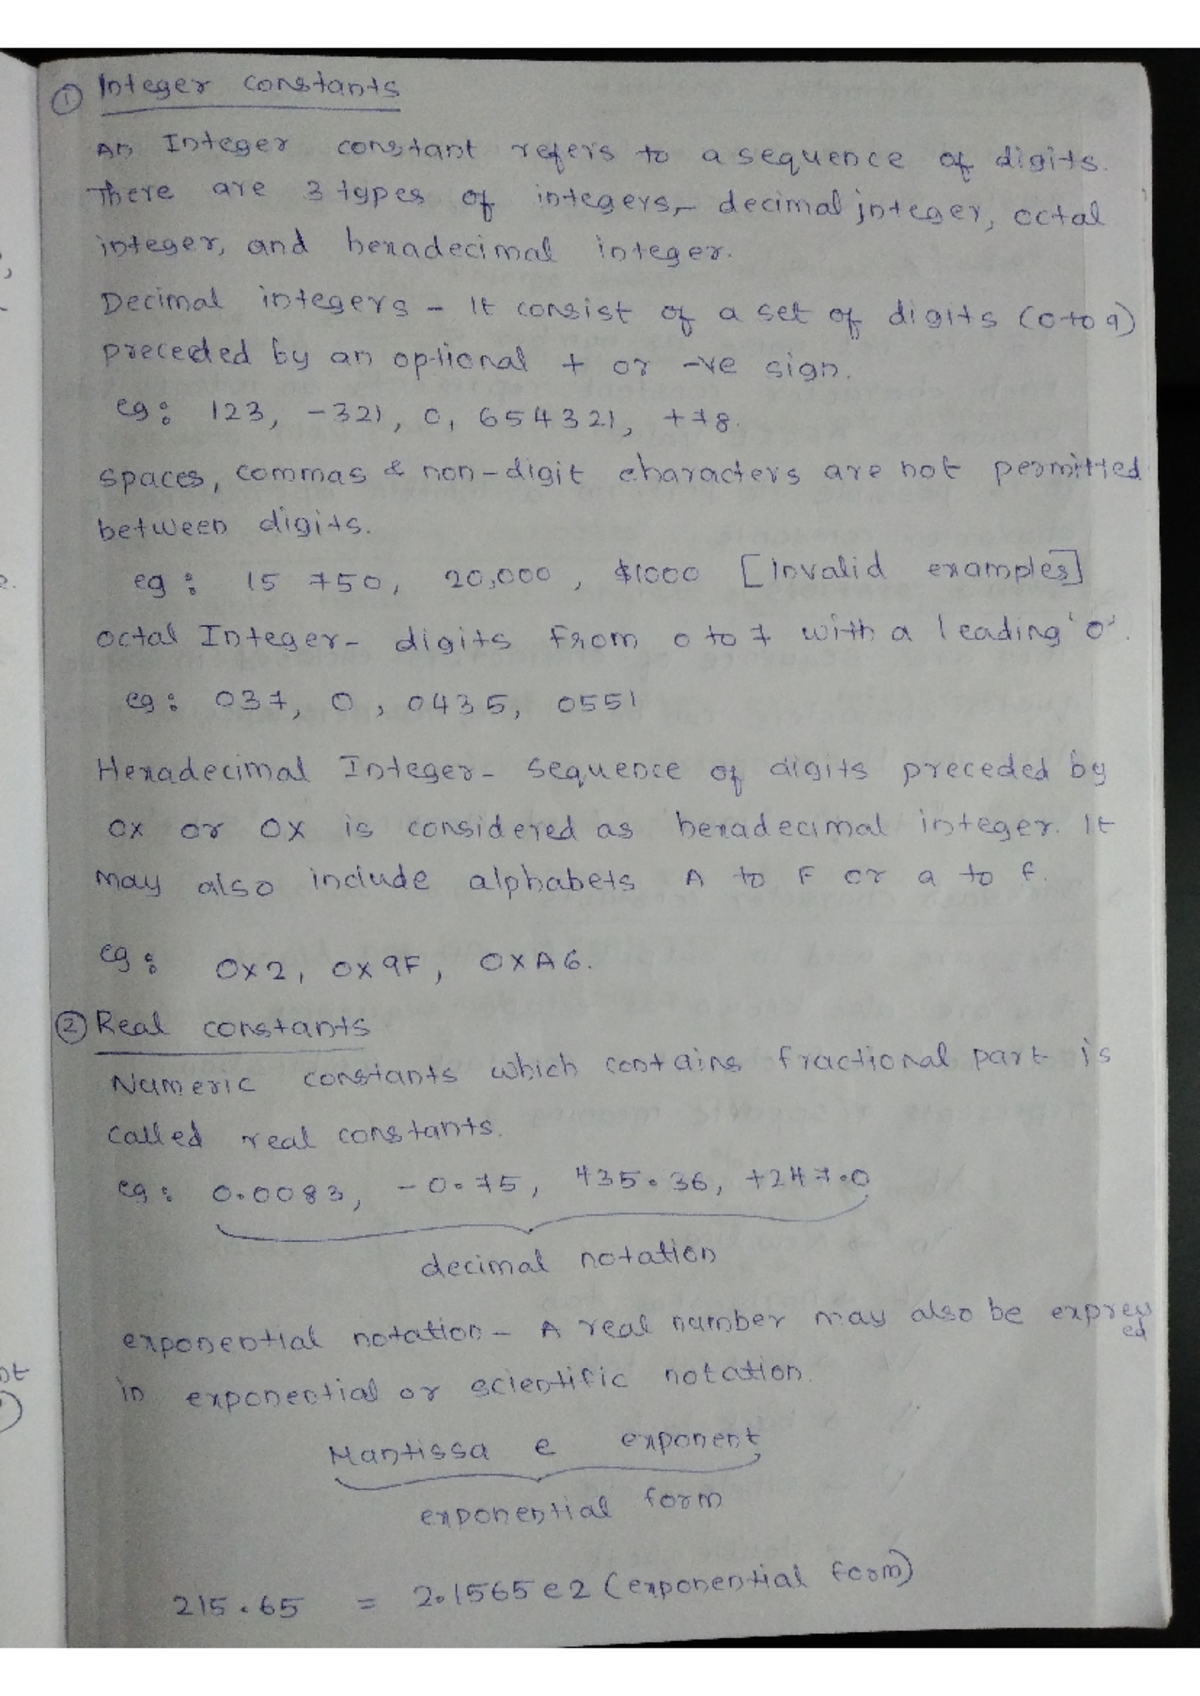 ① Integer constants
An Integer constant refers to a sequence of digits.
There are 3 types of integers, - decimal integer, octal
integer, and hexadecimal integer.
Decimal integers - It consist of a set of digits (0 to 9)
preceded by an optional + or -ve sign.
eg: 123, -321, 0, 654321, +78.
spaces, commas & non-digit characters are not permitted
between digits.
eg: 15 750, 20,000, $1000 [Invalid examples]
octal Integer - digits from 0 to 7 with a leading '0'.
eg: 037, 0, 0435, 0551
Hexadecimal Integer - sequence of digits preceded by
0x or 0X is considered as hexadecimal integer. It
may also include alphabets A to F or a to f.
eg: 0X2, 0x9F, 0XA6.
② Real constants
Numeric constants which contains fractional part is
called real constants.
eg: 0.0083, -0.75, 435.36, +247.0
decimal notation
exponential notation - A real number may also be expressed
in exponential or scientific notation.
Mantissa e exponent
exponential form
215.65 = 2.1565e2 (exponential form)